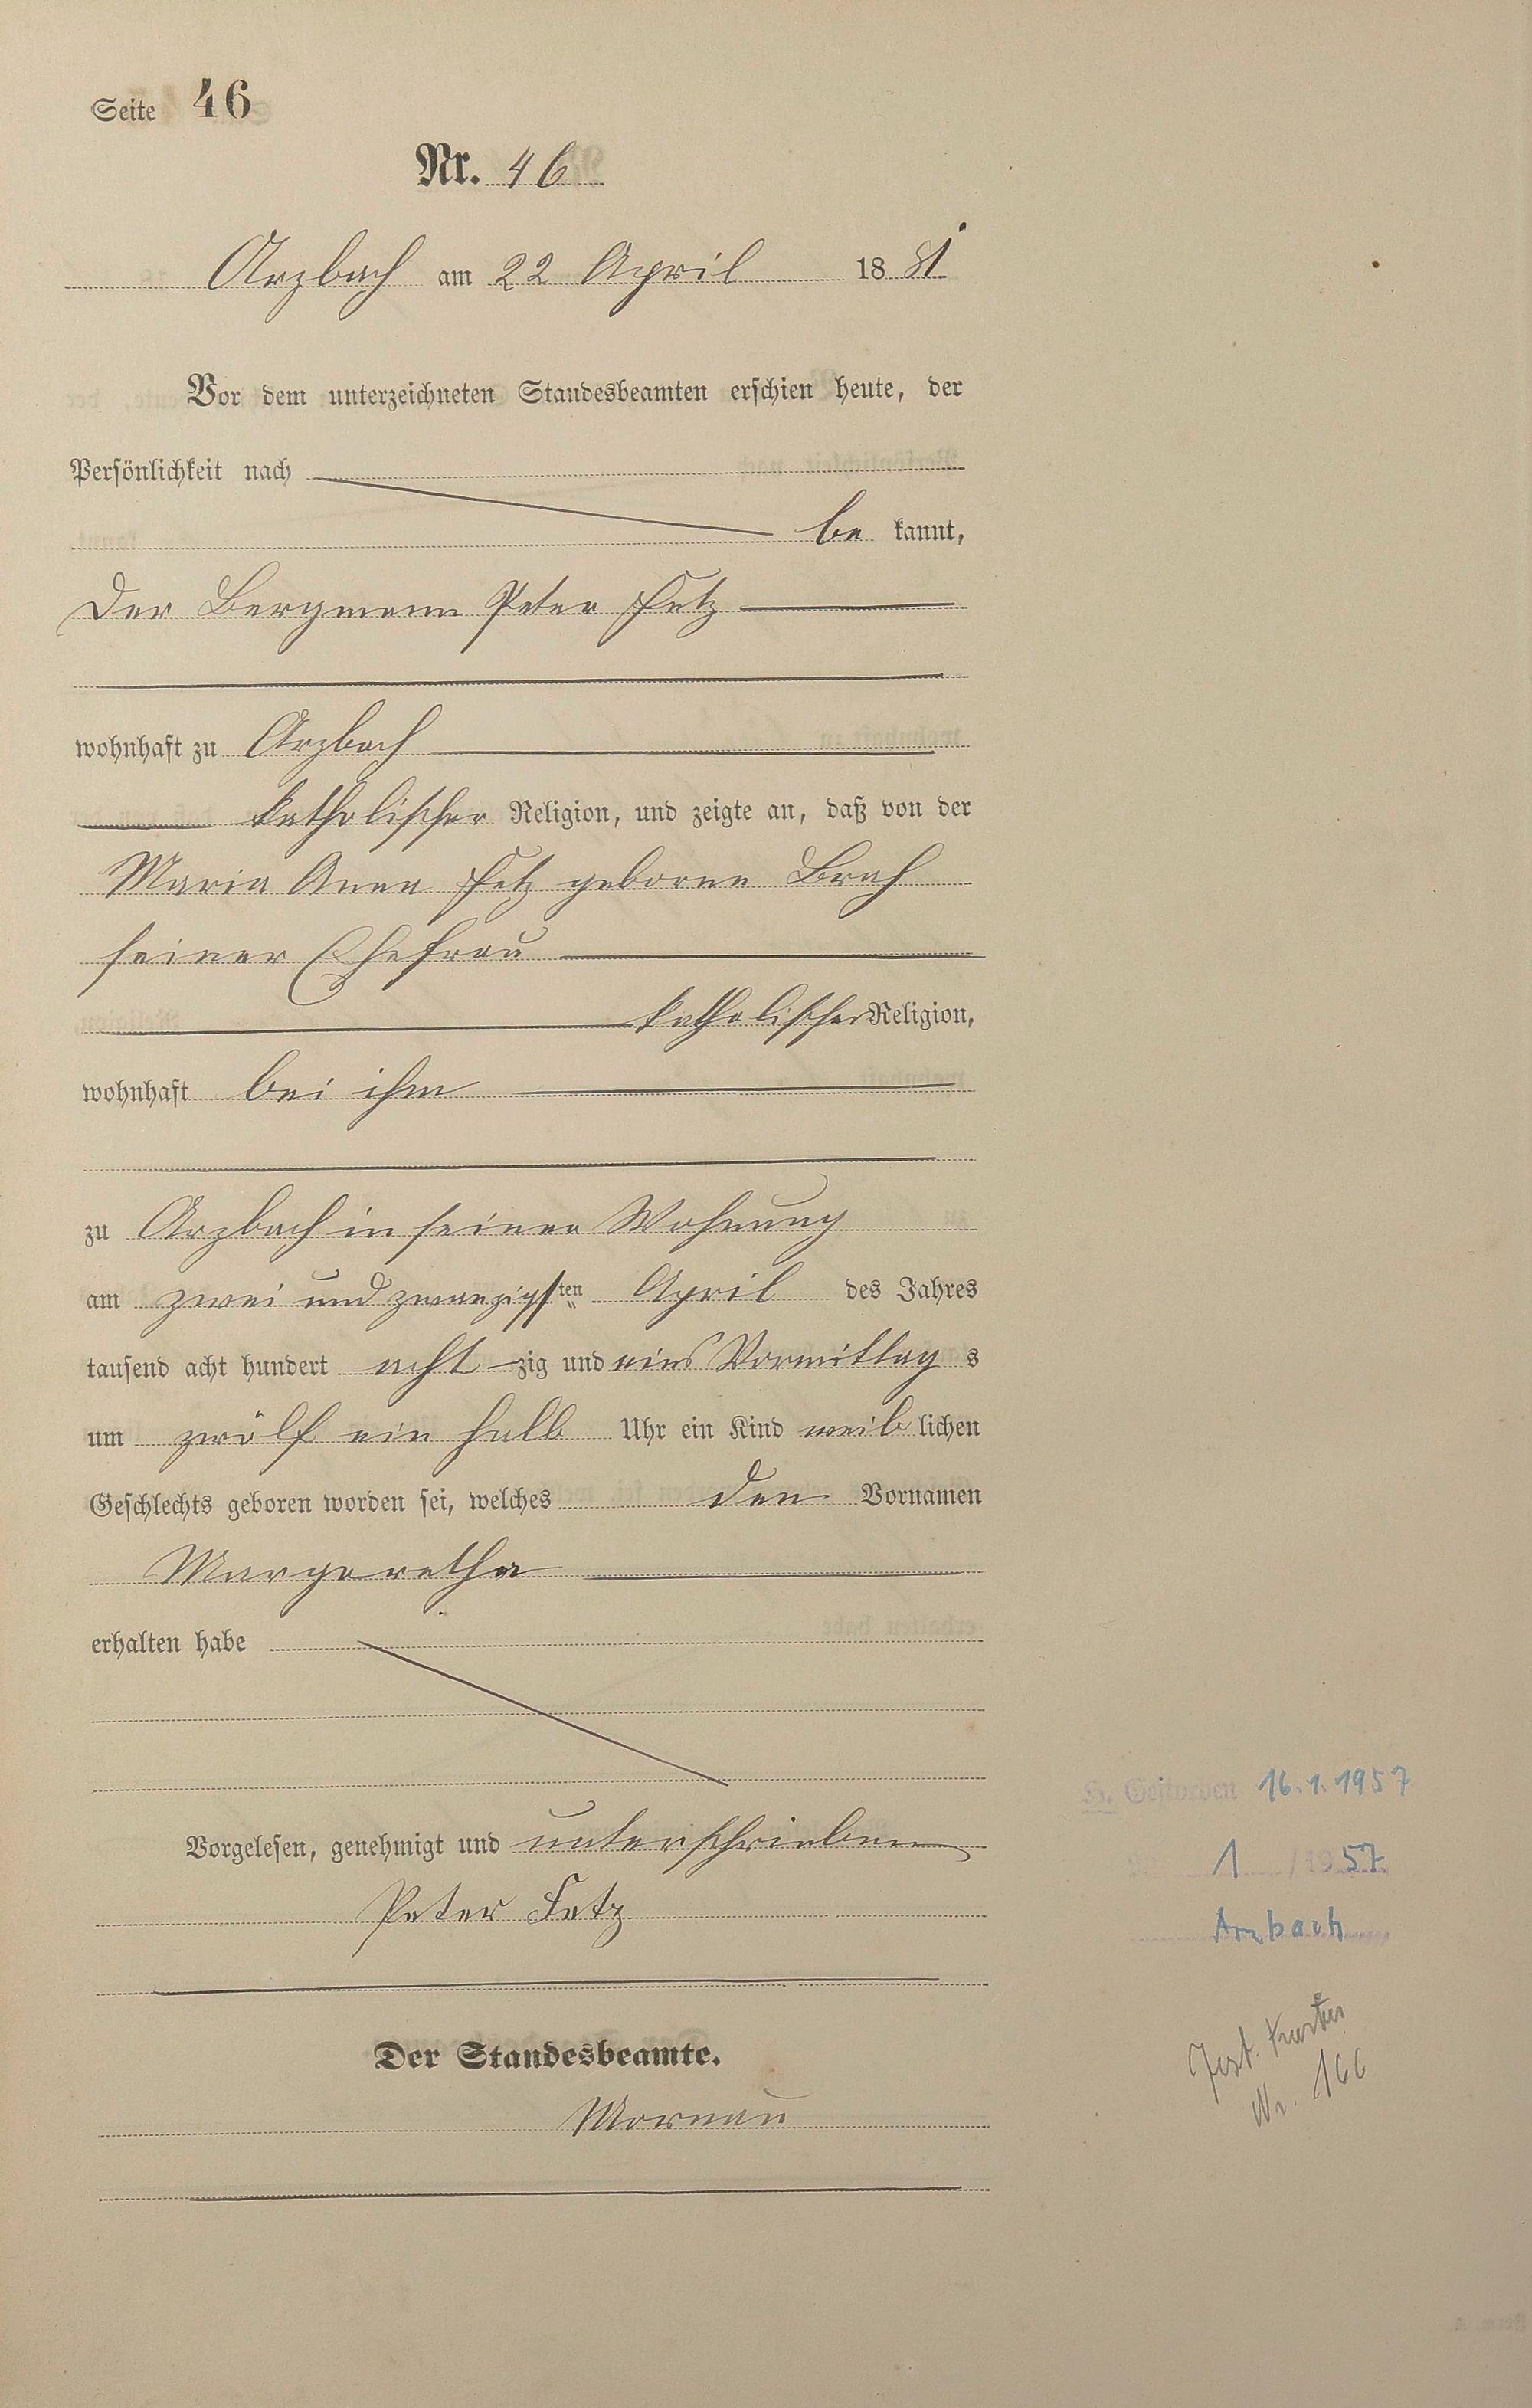 Seite 46
Nr. 46
Arzbach am 22 April 1881
Vor dem unterzeichneten Standesbeamten erschien heute, der
Persönlichkeit nach
be kannt,
der Bergmann Peter Fetz
wohnhaft zu Arzbach
katholischer Religion, und zeigte an, daß von der
Maria Anna Fetz geborne
seiner Ehefrau
katholischer Religion,
wohnhaft bei ihm
zu Arzbach in seiner Wohnung
am zwei und zwanzigsten April des Jahres
tausend acht hundert acht zig und eins Vormittag s
um zwölf ein halb Uhr ein Kind weib lichen
Geschlechts geboren worden sei, welches den Vornamen
Margaretha
erhalten habe
Vorgelesen, genehmigt und unterschrieben
Peter Fetz
Der Standesbeamte.
H. Gestorben 16.1.1957
1 / 1957
Arzbach
Nr. 166